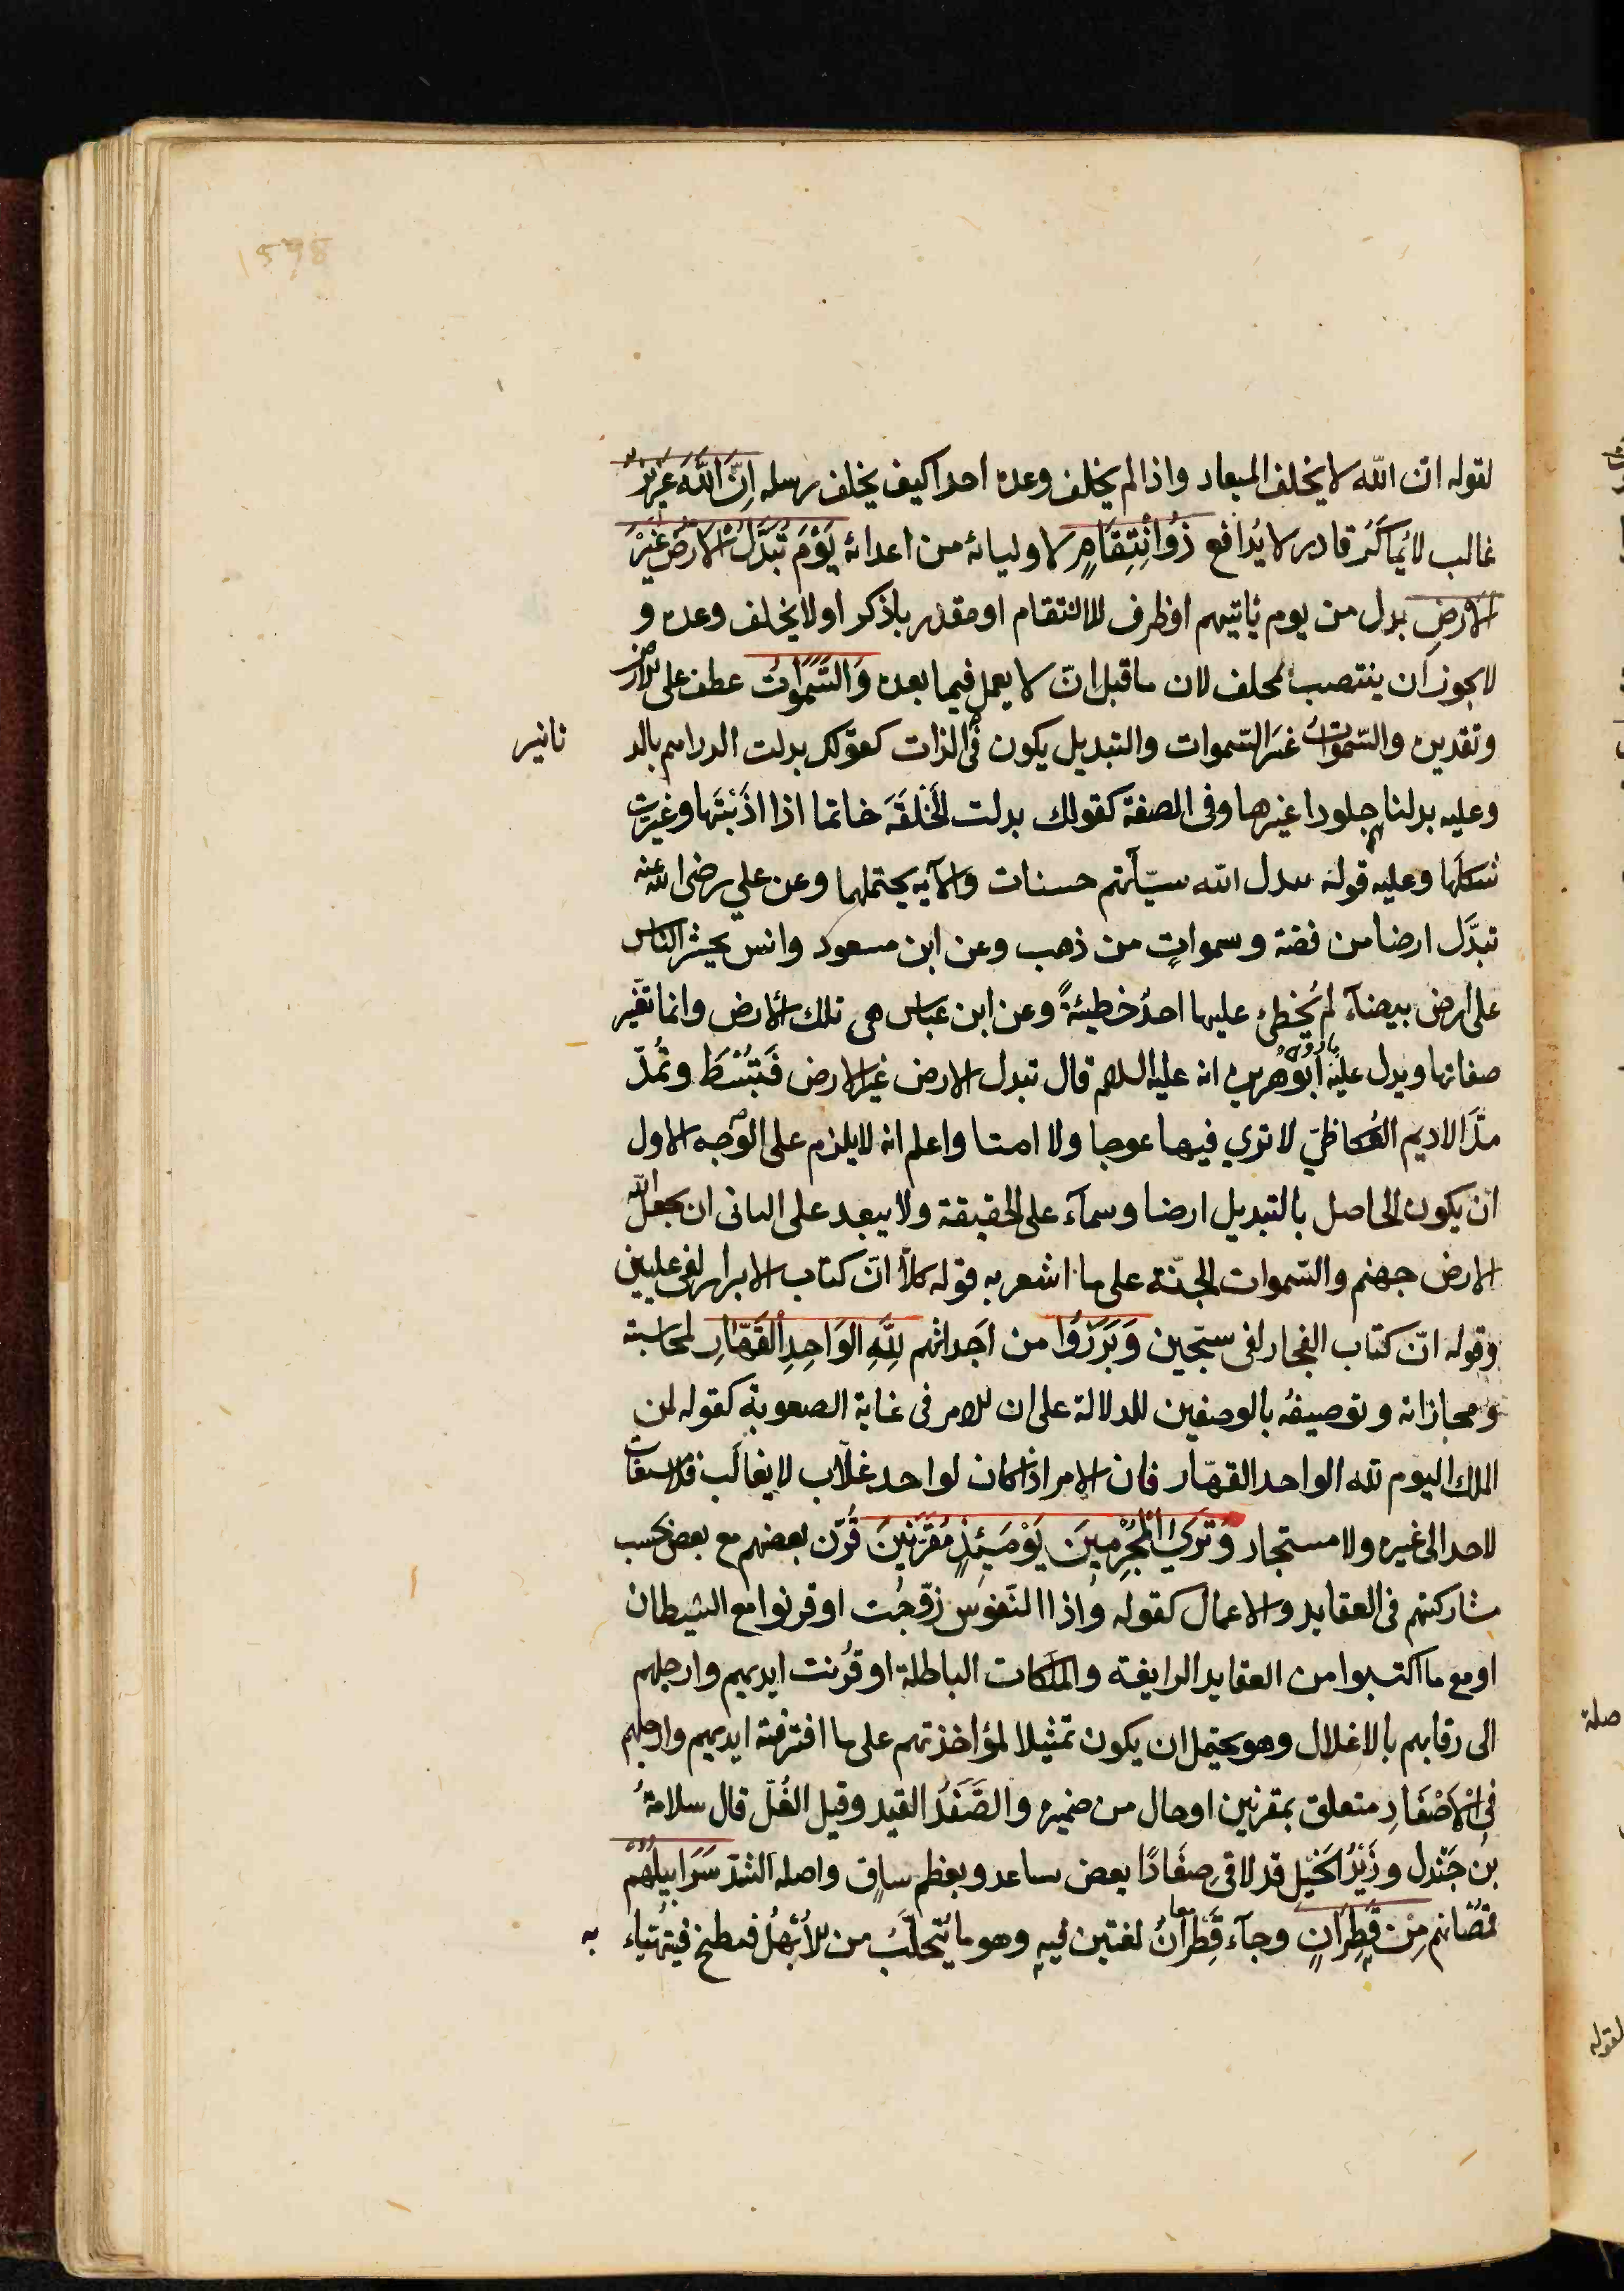 لقوله ان الله لا يخلف الميعاد واذا لم يخلف وعده احدا كيف يخلف رسله اِنَّ اللهَ عَزِيزٌ
غالب لا يُماكَر قادر لا يُدافع ذُو انْتِقَامٍ لاوليائه من اعدائه يَوْمَ تُبَدَّلُ الْاَرْضُ غَيْرَ
الاَرْضِ بدل من يوم ياتيهم او ظرف للانتقام او مقدر باذكر او لا يخلف وعده و
لا يجوز ان ينتصب بمخلف لان ما قبل انّ لا يعمل فيما بعده وَالسَّمٰوَاتُ عطف على الارض
وتقديره والسّمٰوات غيَر السّموات والتبديل يكون فى الذات كقولك بدلت الدراهم بالد
نانير
وعليه بدلناهم جلودا غيرها وفى الصفة كقولك بدلت الحَلْقَةَ خاتما اذا اذَبْتَها وغيّرت
شكلَها وعليه قوله يبدل الله سيّآتهم حسنات والآيه يحتملهما وعن علي رضى الله عنه
تبدَّل ارضا من فضة وسمواتٍ من ذهب وعن ابن مسعود وانس يحشر الناس
على ارض بيضآء لم يُخطِئ عليها احدٌ خطيئةً وعن ابن عباس هى تلك الارض وانما تغَير
صفاتها ويدل عليه ما روى ابُو هُريره انه عليه السلام قال تبدل الارض غير الارض فَتبْسَطُ وتُمَدّ
مدَّ الاديم العُكاظيّ لا ترى فيها عوجا ولا امتا واعلم انه لا يلزم على الوجه الاول
ان يكون الحاصل بالتبديل ارضا وسمآء على الحقيقة ولا يبعد على الثانى ان يجعل الله
الارض جهنم والسّموات الجنّة على ما اشعر به قوله كلّا انّ كتاب الابرار لفى عليين
وقوله انّ كتاب الفجار لفى سجّين وَبَرَزُوا من اَجداثهم لِلّٰهِ الوَاحِدِ القَهّارِ لمحاسبته
ومجازاته وتوصيفهُ بالوصفين للدلالة على ان الامر فى غاية الصعوبة كقوله لمن
الملك اليوم لله الواحد القهّار فان الامر اذا كان لواحد غلّاب لا يغالَب فلا مستغاث
لاحد الى غيره ولا مستجار وَتَرَى الْمُجْرِمِينَ يَوْمَئِذٍ مُقَرَّنِينَ قُرّن بعضهم مع بعض بحسب
مشاركتهم فى العقايد والاعمال كقوله واذا النّفوسُ زوّجُت او قرنوا مع الشيطان
او مع ما اكتسبوا من العقايد الزايغة والملَكات الباطلة او قُرُنت ايديهم وارجلهم
الى رقابهم بالاغلال وهو يحتمل ان يكون تمثيلا لمؤاخذتهم على ما اقترفته ايديهم وارجلهم
فِى الْاَصْفَادِ متعلق بمقرنين او حال من ضميره والصَّفَدُ القيد وقيل الغُلّ قال سلامةُ
بن جَنْدل وزَيْدُ الخَيْل قد لاقى صِفَادًا يعض بساعد وبعظم ساق واصله الشدّ سَرَابِيلُهُمْ
قمْصَانهم مِنْ قَطِرَانٍ وجآء قَطْرانُ لغتين فيه وهو ما يُتحلَّبُ من الاُبْهُلِ فيطبخ فيُهنأ
به